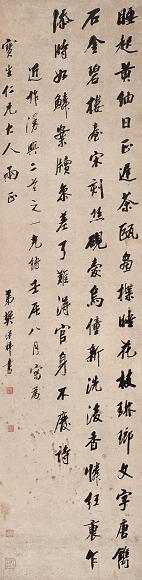 睡起黃紬日正遲茶甌樣花枝琳瑯文字唐鐫
石金碧樓臺宋刻絲硯愛烏僮新洗後香憐紅褏乍
添時如鱗案牘參差了難得官身不廢詩
近作漫興二首之一光緒壬辰八月寫爲
寶生仁兄大人兩正
弟樊增祥書